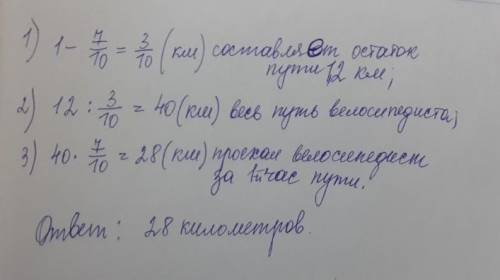 1) 1 - 7/10 = 3/10 (км) составляет остаток
пути 12 км;
2) 12 : 3/10 = 40 (км) весь путь велосипедиста;
3) 40 · 7/10 = 28 (км) проехал велосипедист
за 1 час пути.
Ответ: 28 километров.